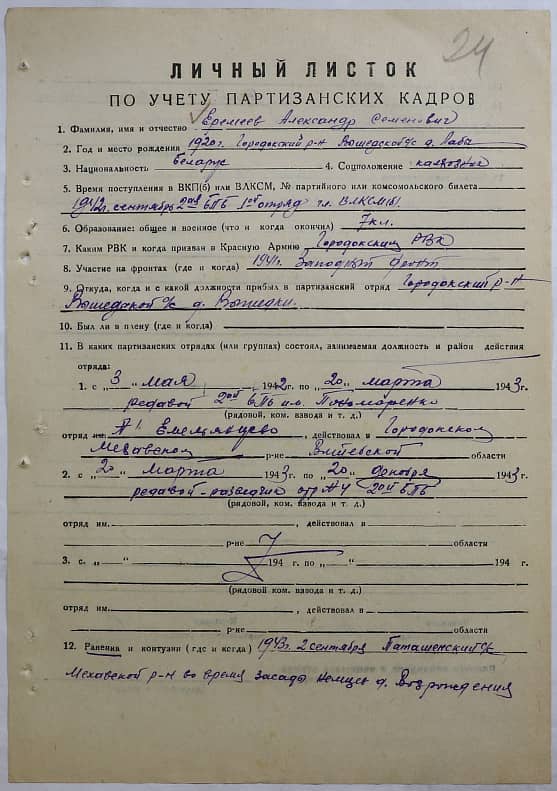 24
ЛИЧНЫЙ ЛИСТОК
ПО УЧЕТУ ПАРТИЗАНСКИХ КАДРОВ
1. Фамилия, имя и отчество Еремеев Александр Семенович
2. Год и место рождения 1920 г. Городокский р-н Вышедский с/с д.
3. Национальность беларус 4. Соцположение колхозник
5. Время поступления в ВКП(б) или ВЛКСМ, № партийного или комсомольского билета
1942 г. сентябрь 2ая БПБ 1ый отряд чл. ВЛКСМ(б).
6. Образование: общее и военное (что и когда окончил) 7 кл.
7. Каким РВК и когда призван в Красную Армию Городокским РВК
8. Участие на фронтах (где и когда) 1941 г. Западный фронт
9. Откуда, когда и с какой должности прибыл в партизанский отряд Городокский р-н
Вышедский с/с д. Вышедки.
10. Был ли в плену (где и когда)
11. В каких партизанских отрядах (или группах) состоял, занимаемая должность и район действия
отряда:
1. с „3“ мая 1942 г. по „20“ марта 1943 г.
редавой 2ой БПБ им. Пономаренко
(рядовой, ком. взвода и т. д.)
отряд им. №1 Емельянцево, действовал в Городокском
Мехавском р-не Витебской области
2. с „20“ марта 1943 г. по „20“ декабря 1943 г.
редавой-разведчик отр №4 2ой БПБ
(рядовой, ком. взвода и т. д.)
отряд им. , действовал в
р-не области
3. с „ “ 194 г. по „ “ 194 г.
(рядовой, ком. взвода и т. д.)
отряд им. , действовал в
р-не области
12. Ранения и контузии (где и когда) 1943 г. 2 сентября Паташенский с/с
Мехавской р-н во время засады немцев д. Возрождения